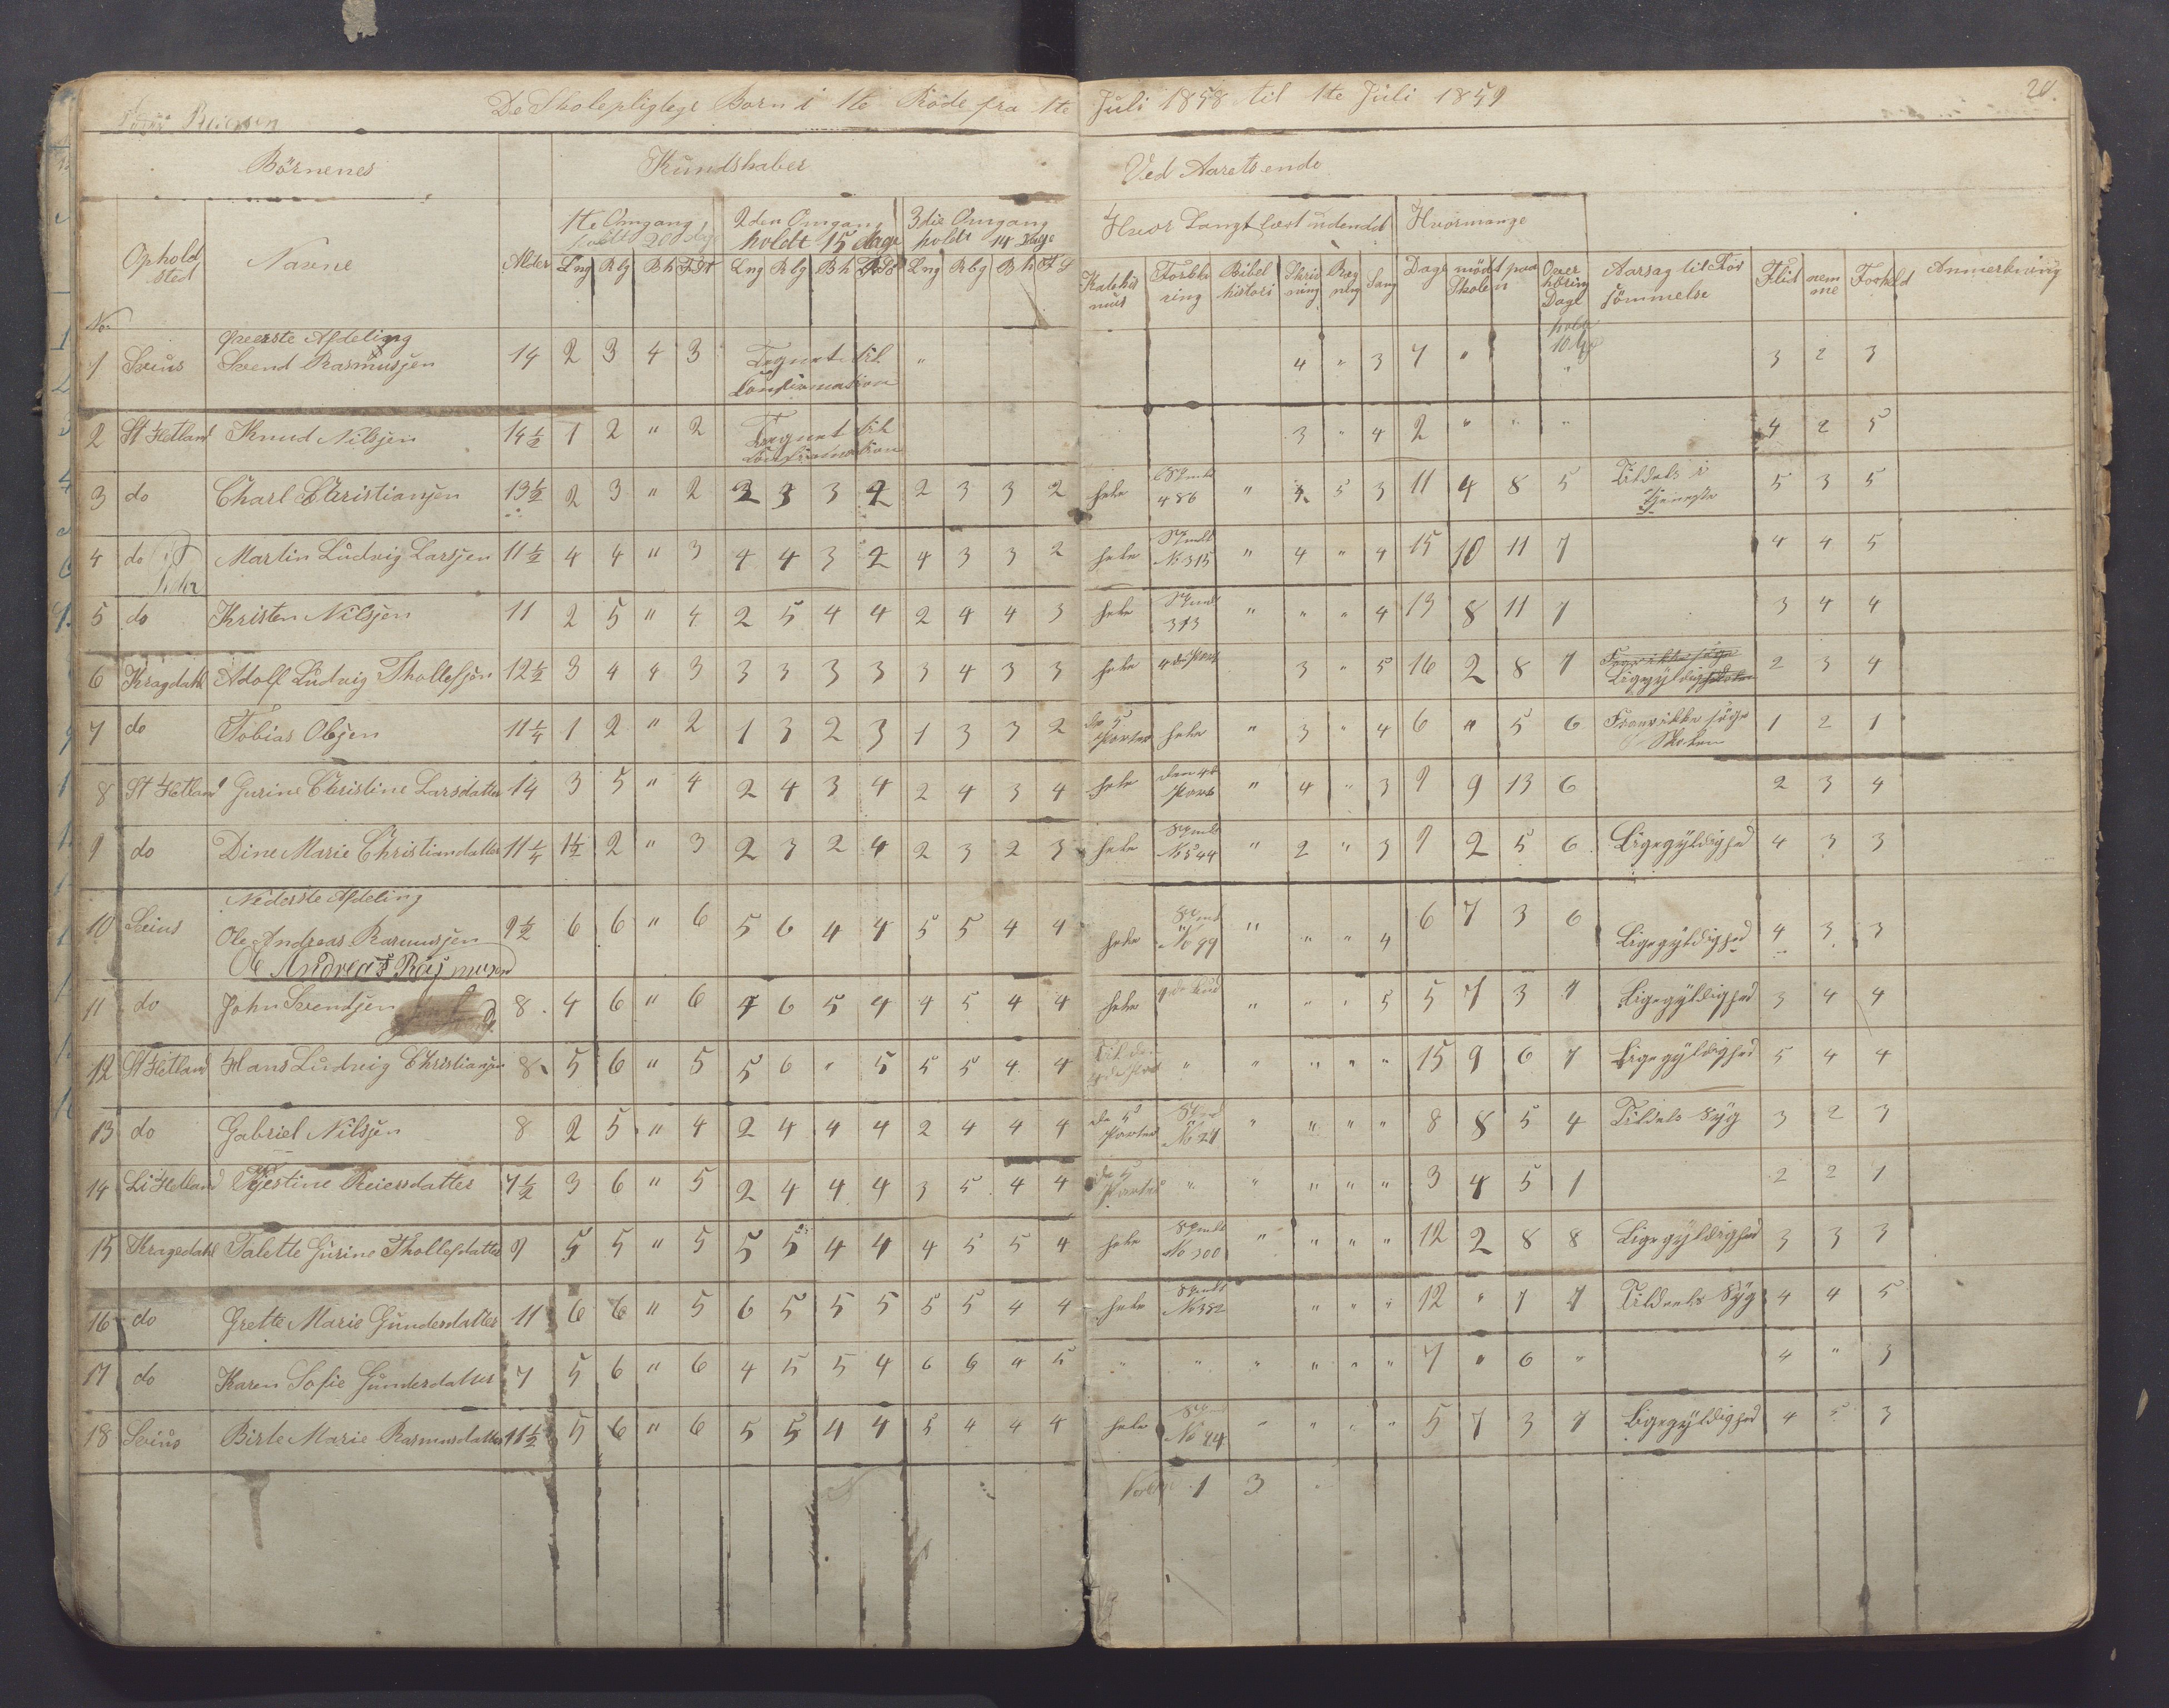 De Skolepligtege Børn i 1te Rode fra 1te Juli 1858 til 1te Juli 1859 20.
Reiersen
Börnenes Kundskaber Ved Aarets ende
1te Omgang 2den Omgang 3die Omgang Hvor Langt læst udendad Hvormange
holdt 20 Dage holdt 15 dage holdt 14 Dage
Ophold sted Navne Alder Lng Rlg Bh Lng Rlg Bh Lng Rlg Bh Katekis mus Forkla ring Bibel histori Skriv ning Reg ning Sang Dage mødt paa Skolen Over höring Dage Aarsag til For sömmelse Flid nem me Forhold Anmerkning
No holdt 10 Dage
Øverste Afdeling
1 Sviüs Svend Rasmusjen 14 2 3 4 3 Tegnet til Confirmation " 4 " 3 7 " " 3 2 3
2 St Hetland Knud Nilsjen 14½ 1 2 " 2 Tegnet til Confirmation 3 " 4 2 " " " 4 2 5
3 do Charl Christianjen 13½ 2 3 " 2 2 3 3 2 2 3 3 2 hele 486 " 3 5 3 11 4 8 5 Tildels i Tjeneste 5 3 5
4 do Martin Ludvig Larsjen 11½ 4 4 " 3 4 4 3 2 4 3 3 2 hele No 315 " 4 " 4 15 10 11 7 4 4 5
5 do Kristen Nilsjen 11 2 5 " 4 2 5 4 4 2 4 4 3 hele 313 " " " 4 13 8 11 7 3 4 4
6 Kragdahl Adolf Ludvig Thollefsjön 12½ 3 4 4 3 3 3 3 3 3 4 3 3 hele 4de Part 3 " 5 16 2 8 7 Ligegyldighed 2 3 4
7 do Tobias Olsjen 11¼ 1 2 " 2 1 3 2 3 1 3 3 2 de 5 Parter hele " 3 " 4 6 " 5 6 Skolen 1 2 1
8 St Hetland Gurine Christine Larsdatter 14 3 5 " 4 2 4 3 4 2 4 3 4 hele den 4de Part " 4 " 3 9 9 13 6 2 3 4
9 do Dine Marie Christiandatter 11¼ 1½ 2 " 3 2 3 2 4 2 3 2 3 hele No 544 " 2 " 3 9 2 5 6 Ligegyldighed 4 3 3
Nederste Afdeling
10 Sviüs Ole Andreas Rasmusjen 9½ 6 6 " 6 5 6 4 4 5 5 4 4 hele No 99 " " " 4 6 7 3 6 Ligegyldighed 4 3 3
Ole Andreas Rasmusen
11 do John Svendsjen 8 4 6 " 6 4 6 5 4 4 5 4 4 hele " " " 5 5 7 3 7 Ligegyldighed 3 4 4
12 St Hetland Hans Ludvig Christianjen 8 5 6 " 5 5 6 " 5 5 5 4 4 Til den 4de Part " " " " " 15 9 6 7 Ligegyldighed 5 4 4
13 do Gabriel Nilsjen 8 2 5 " 4 2 4 4 4 2 4 4 4 de 5 Parter No 21 " " " " 8 8 5 4 Tildels Syg 3 2 3
14 Li Hetland Kjestine Reiersdatter 7½ 3 6 " 5 2 4 4 4 3 5 4 4 de 5 Parter " " " " " 3 4 5 1 2 2 1
15 Kragedahl Talette Gurine Thollefsdatter 9 5 5 " 5 5 5 4 4 4 5 5 4 hele No 300 " " " " 12 2 8 8 Ligegyldighed 3 3 3
16 do Grette Marie Gundersdatter 11 6 6 " 5 6 5 5 5 5 5 4 4 hele No 352 " " " 12 " 7 7 Tildeels Syg 4 4 5
17 do Karen Sofie Gundersdatter 7 5 6 " 6 4 5 5 4 6 6 4 5 " " " " " " 7 " 6 " 4 " 3
18 Sviüs Birte Marie Rasmusdatter 11½ 5 6 " 6 5 5 4 4 5 4 4 4 hele No 44 " " " " 5 7 3 7 Ligegyldighed 4 5 3
1 3